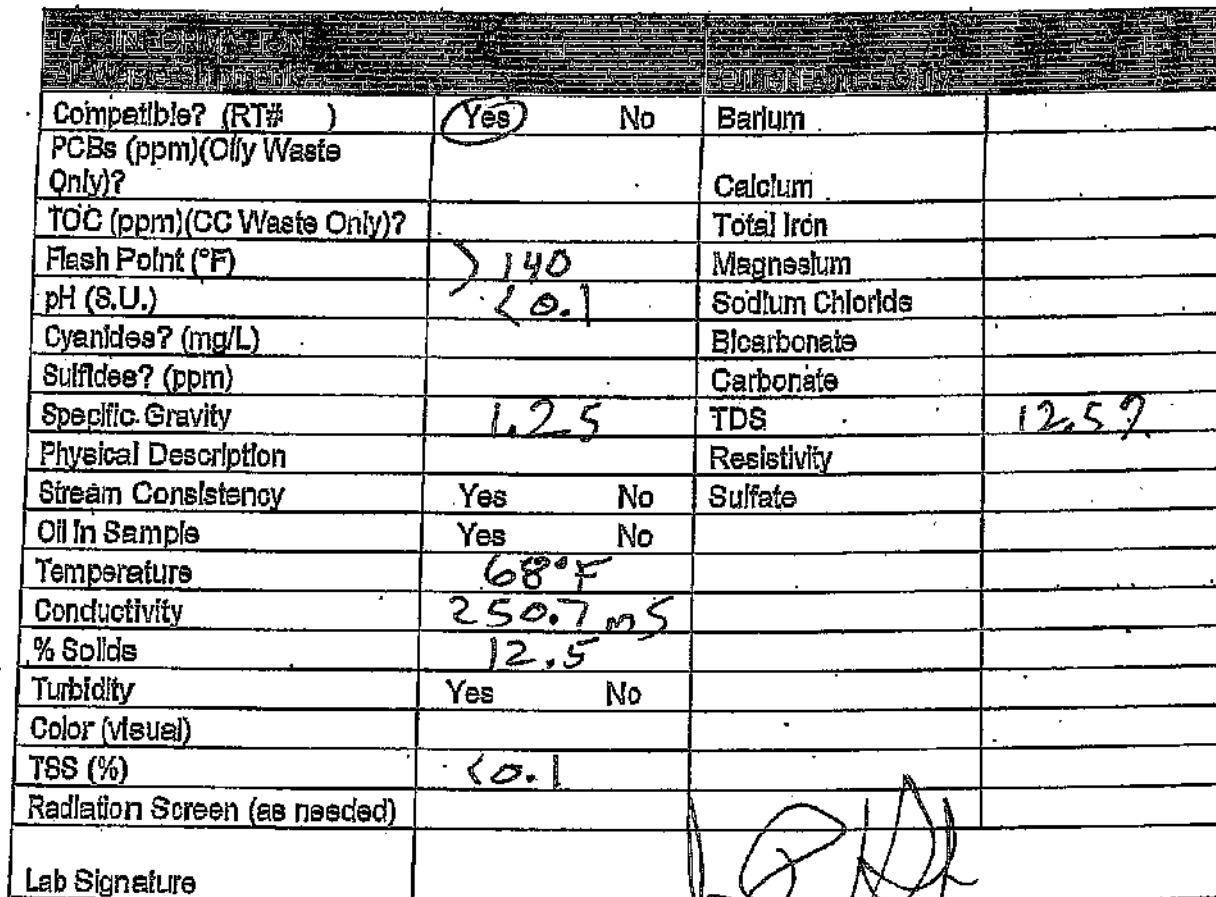 LAB INFORMATION
Compatible? (RT# ) Yes No Barium
PCBs (ppm)(Oily Waste
Only)? Calcium
TOC (ppm)(CC Waste Only)? Total Iron
Flash Point (°F) >140 Magnesium
pH (S.U.) <0.1 Sodium Chloride
Cyanides? (mg/L) Bicarbonate
Sulfides? (ppm) Carbonate
Specific Gravity 1.25 TDS 12.5
Physical Description Resistivity
Stream Consistency Yes No Sulfate
Oil in Sample Yes No
Temperature 68°F
Conductivity 250.7 mS
% Solids 12.5
Turbidity Yes No
Color (visual)
TSS (%) <0.1
Radiation Screen (as needed)
Lab Signature